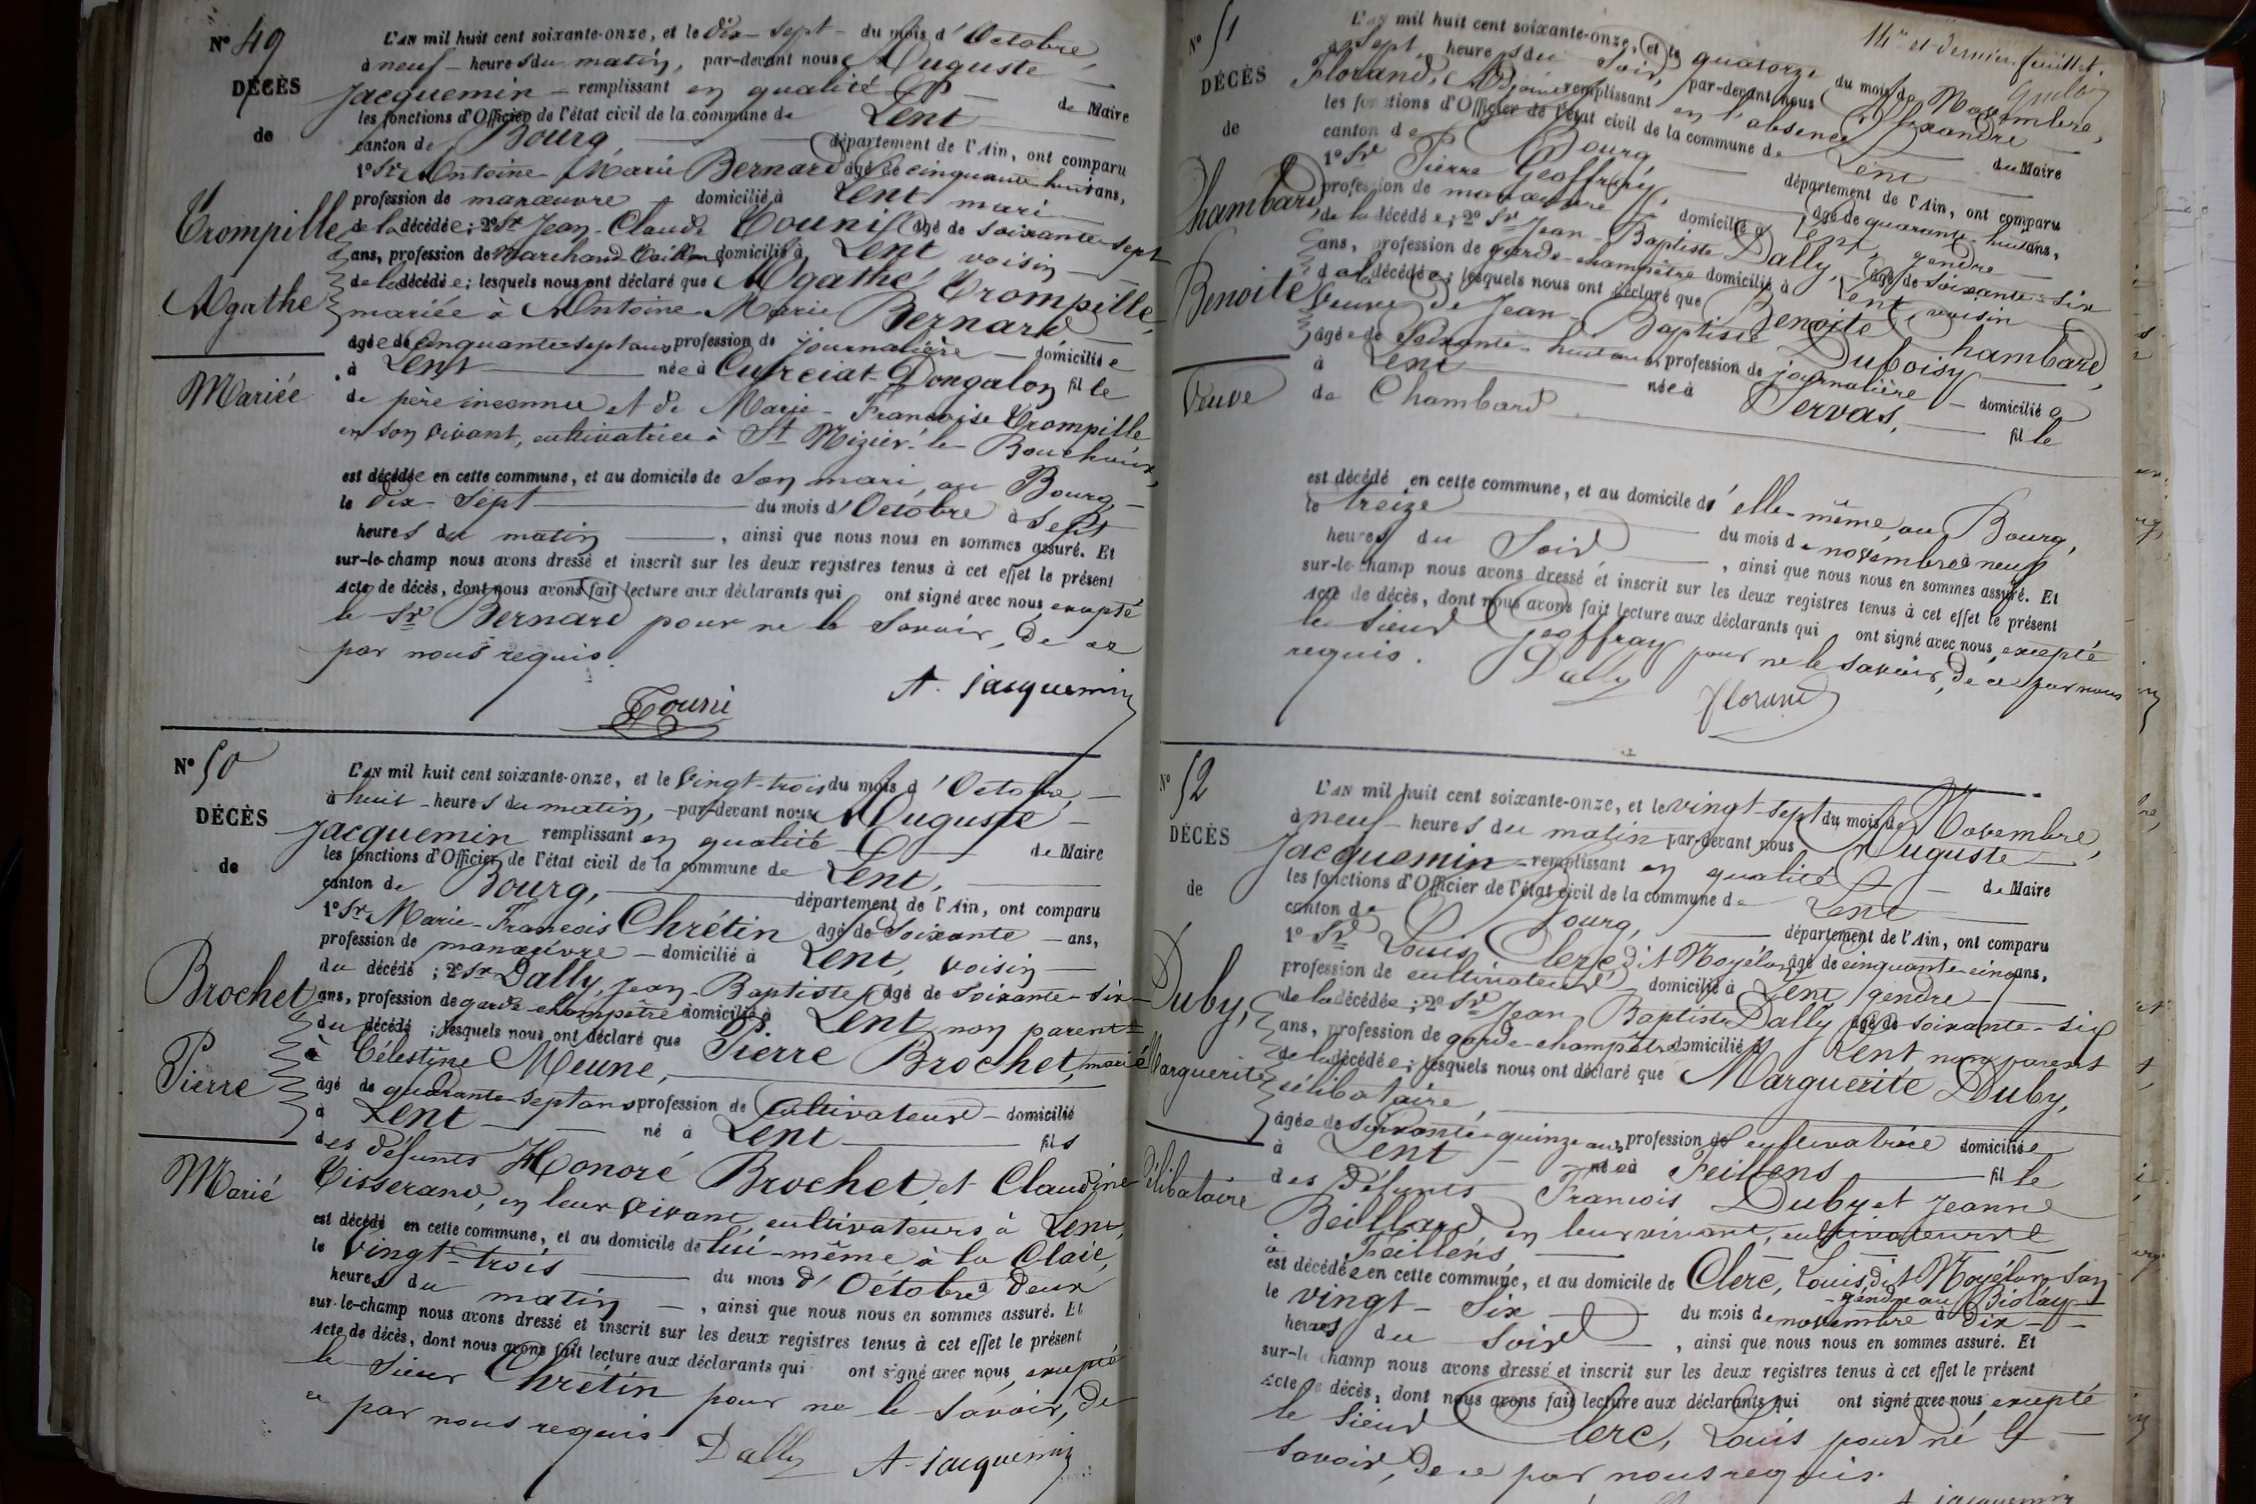 N° 49
DÉCÈS
de
Trompille
Agathe
Mariée
L'AN mil huit cent soixante-onze, et le Dix-Sept du mois d'Octobre,
à neuf heures du matin, par-devant nous Auguste
Jacquemin remplissant en qualité de Maire
les fonctions d'Officier de l'état civil de la commune de Lent
canton de Bourg département de l'Ain, ont comparu
1° Sr Antoine Marie Bernard âgé de cinquante huit ans,
profession de manœuvre domicilié à Lent mari
de la décédée; 2° Sr Jean-Claude Touni âgé de soixante-sept
ans, profession de Marchand domicilié à Lent voisin
de la décédée; lesquels nous ont déclaré que Agathe Trompille,
mariée à Antoine-Marie Bernard
âgée de Cinquante-sept ans profession de journalière domiciliée
à Lent née à Curciat-Dongalon fille
de père inconnu et de Marie-Françoise Trompille
en son vivant, cultivatrice à St Nizier-le Bouchoux,
est décédée en cette commune, et au domicile de son mari, au Bourg,
le Dix-Sept du mois d'Octobre à Sept
heures du matin, ainsi que nous nous en sommes assuré. Et
sur-le-champ nous avons dressé et inscrit sur les deux registres tenus à cet effet le présent
Acte de décès, dont nous avons fait lecture aux déclarants qui ont signé avec nous, excepté
le Sr Bernard pour ne le savoir, de ce
par nous requis.
Touni A. Jacquemin
N° 50
DÉCÈS
de
Brochet
Pierre
Marié
L'AN mil huit cent soixante-onze, et le vingt-trois du mois d'Octobre,
à huit heures du matin, par-devant nous Auguste
Jacquemin remplissant en qualité de Maire
les fonctions d'Officier de l'état civil de la commune de Lent,
canton de Bourg, département de l'Ain, ont comparu
1° Sr Marie-François Chrétin âgé de Soixante ans,
profession de manœuvre domicilié à Lent, voisin
du décédé; 2° Sr Dally, Jean-Baptiste, âgé de soixante-six
ans, profession de garde-champêtre domicilié à Lent, non parent
du décédé; lesquels nous ont déclaré que Pierre Brochet, marié
à Célestine Meune,
âgé de quarante-sept ans profession de Cultivateur domicilié
à Lent né à Lent fils
des défunts Honoré Brochet, et Claudine
Tisserand, en leur vivant, cultivateurs à Lent,
est décédé en cette commune, et au domicile de lui-même à la Claie,
le vingt-trois du mois d'Octobre à Deux
heures du matin, ainsi que nous nous en sommes assuré. Et
sur-le-champ nous avons dressé et inscrit sur les deux registres tenus à cet effet le présent
Acte de décès, dont nous avons fait lecture aux déclarants qui ont signé avec nous, excepté
le Sieur Chrétin pour ne le savoir, de
ce par nous requis.
Dally A. Jacquemin
14e et dernier feuillet.
N° 51
DÉCÈS
de
Chambard
Benoite
Veuve
L'AN mil huit cent soixante-onze, et le quatorze du mois de Novembre,
à Sept heures du Soir, par-devant nous Alexandre
Florand, Adjoint remplissant en l'absence du Maire
les fonctions d'Officier de l'état civil de la commune de Lent
canton de Bourg, département de l'Ain, ont comparu
1° Sr Pierre Geoffray, âgé de quarante-huit ans,
profession de manœuvre domicilié à Lent, gendre
de la décédée; 2° Sr Jean-Baptiste Dally, âgé de soixante-six
ans, profession de garde-champêtre domicilié à Lent, voisin
de la décédée; lesquels nous ont déclaré que Benoite Chambard,
veuve de Jean-Baptiste Duboisy
âgée de Soixante-huit ans profession de journalière domiciliée
à Lent née à Servas, fille
de Chambard
est décédé en cette commune, et au domicile d'elle-même, au Bourg,
le treize du mois de novembre à neuf
heures du Soir, ainsi que nous nous en sommes assuré. Et
sur-le-champ nous avons dressé et inscrit sur les deux registres tenus à cet effet le présent
Acte de décès, dont nous avons fait lecture aux déclarants qui ont signé avec nous, excepté
le Sieur Geoffray pour ne le savoir, de ce par nous
requis.
Dally Florand
N° 52
DÉCÈS
de
Duby,
Marguerite
Célibataire
L'AN mil huit cent soixante-onze, et le vingt-sept du mois de Novembre,
à neuf heures du matin par-devant nous Auguste
Jacquemin remplissant en qualité de Maire
les fonctions d'Officier de l'état civil de la commune de Lent
canton de Bourg, département de l'Ain, ont comparu
1° Sr Louis Clerc dit Noyélon, âgé de cinquante-cinq ans,
profession de cultivateur domicilié à Lent, gendre
de la décédée; 2° Sr Jean-Baptiste Dally âgé de soixante-six
ans, profession de garde-champêtre domicilié à Lent non parent
de la décédée; lesquels nous ont déclaré que Marguerite Duby,
célibataire
âgée de Soixante-quinze ans profession de cultivatrice domiciliée
à Lent née à Feillens fille
des défunts François Duby et Jeanne
Beillard, en leur vivant, cultivateurs
à Feillens,
est décédée en cette commune, et au domicile de Clerc, Louis, dit Noyélon, son
gendre au Biolay
le vingt-Six du mois de novembre à dix
heures du Soir, ainsi que nous nous en sommes assuré. Et
sur-le-champ nous avons dressé et inscrit sur les deux registres tenus à cet effet le présent
Acte de décès, dont nous avons fait lecture aux déclarants qui ont signé avec nous, excepté
le Sieur Clerc, Louis pour ne le
savoir, de ce par nous requis.
A. Jacquemin